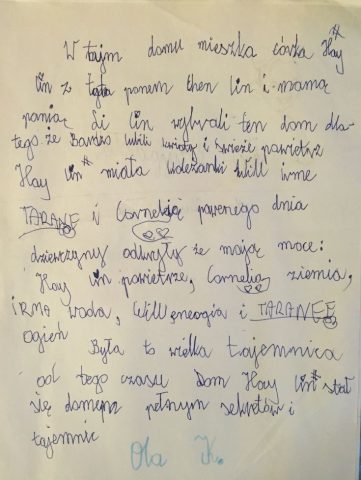 W tajm domu mieszka córka Hay
lin z tatą panem chen lin i mamą
panią Li lin wybrali ten dom dla-
tego że Bardzo lubili kwiaty i świeże powietrz
Hay lin* miała koleżanki Will irme
TARANE i Cornelią pewnego dnia
dziewczyny odkryły że mają moce:
Hay lin powietrze, Cornelia ziemia,
iRMA woda, Will energia i TARANEE
ogień
Była to wielka tajemnica
od tego czasu Dom Hay lin* stał
się domem pełnym sekretów i
tajemnic
Ola K.